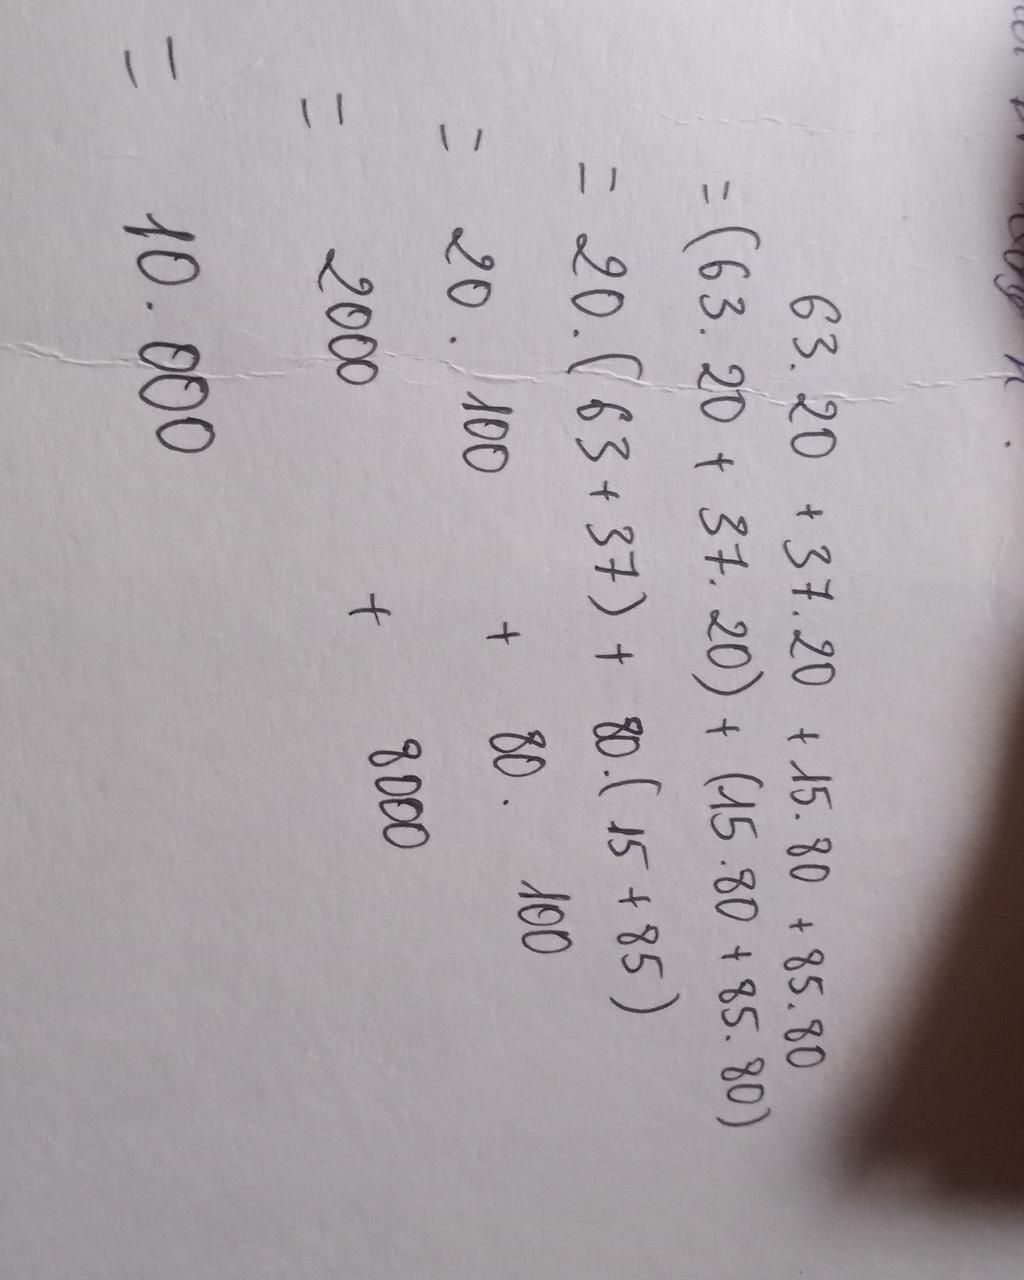 63.20 + 37.20 + 15.80 + 85.80
= (63.20 + 37.20) + (15.80 + 85.80)
= 20.(63+37) + 80.(15+85)
= 20.100 + 80.100
= 2000 + 8000
= 10.000